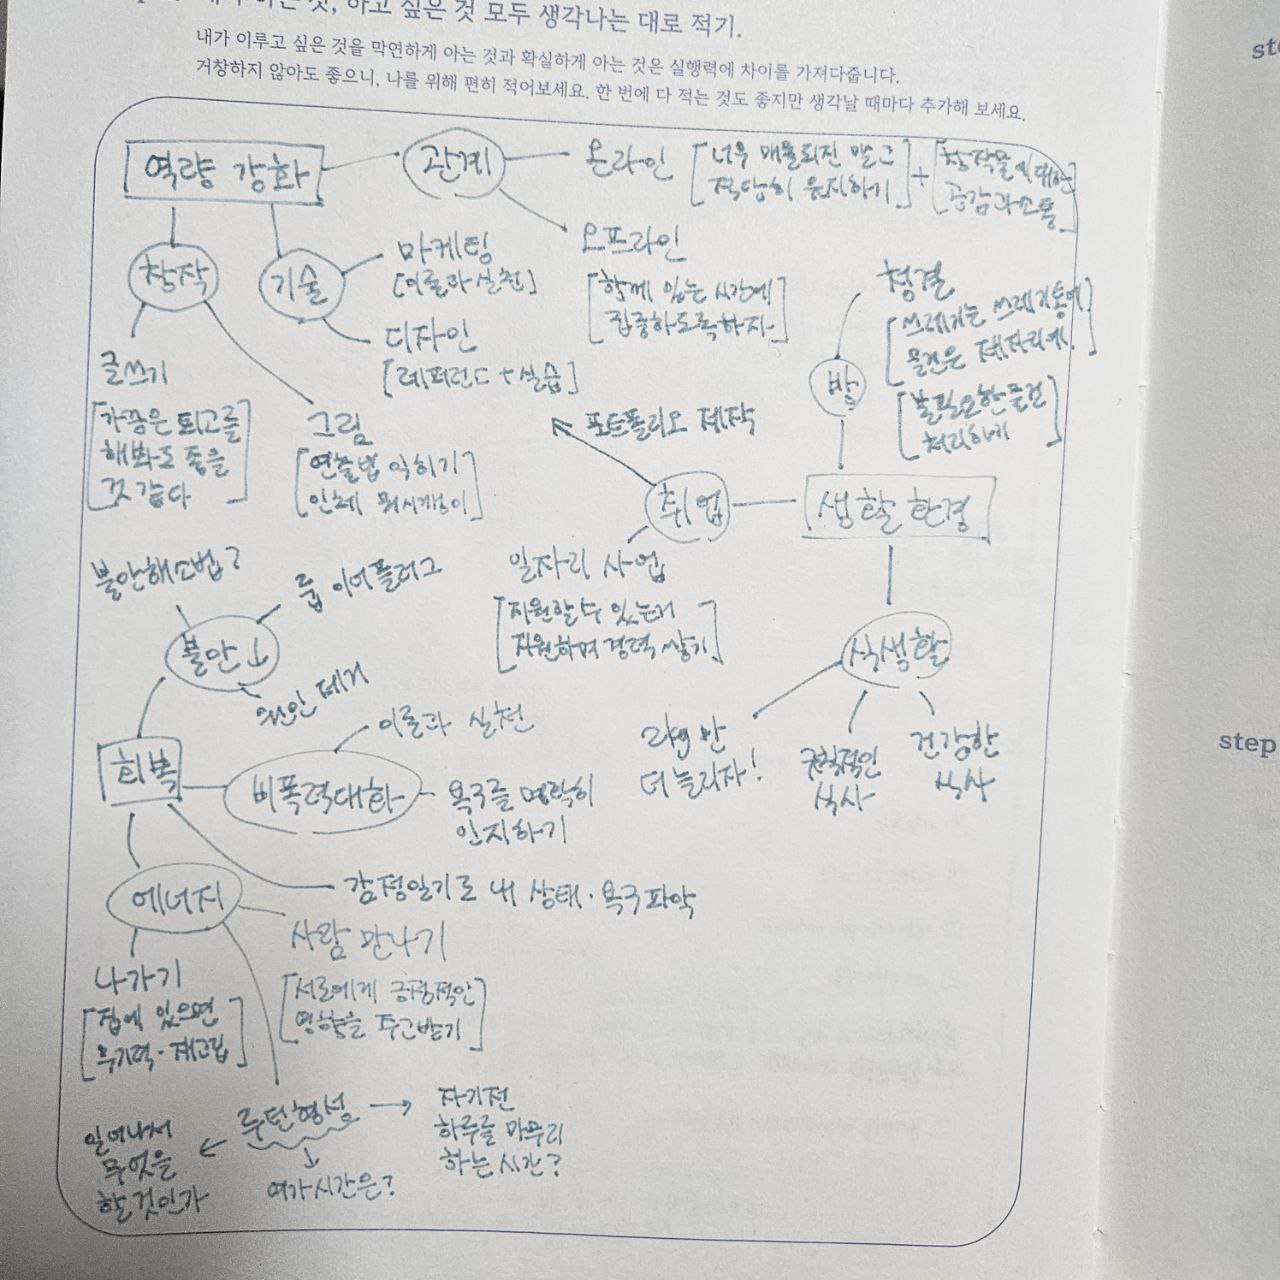 하고 싶은 것 모두 생각나는 대로 적기.
내가 이루고 싶은 것을 막연하게 아는 것과 확실하게 아는 것은 실행력에 차이를 가져다줍니다.
거창하지 않아도 좋으니, 나를 위해 편히 적어보세요. 한 번에 다 적는 것도 좋지만 생각날 때마다 추가해 보세요.
역량 강화
관계
온라인
[너무 매몰되진 말고
적당히 유지하기]
+
[창작물에 대한
공감과 소통]
오프라인
[함께 있는 시간에
집중하도록하자]
창작
기술
마케팅
[이론과 실천]
디자인
[레퍼런스 + 실습]
글쓰기
[가끔은 퇴고를
해봐도 좋을
것 같다]
그림
[연출법 익히기
인체]
청결
[쓰레기는 쓰레기통에
물건은 제자리에]
[불필요한 물건
처리하기]
방
생활 환경
취업
포트폴리오 제작
일자리 사업
[지원할 수 있는거
지원하며 경력 쌓기]
식생활
라면만
더 늘리자!
규칙적인
식사
건강한
식사
불안해소법?
룹 이어플러그
불안↓
원인 제거
회복
비폭력대화
이론과 실천
욕구를 명확히
인지하기
감정일기로 내 상태·욕구파악
에너지
사람 만나기
[서로에게 긍정적인
영향을 주고받기]
나가기
[집에 있으면
무기력·재고립]
루틴형성
일어나서
무엇을
할것인가
여가시간은?
자기전
하루를 마무리
하는 시간?
step